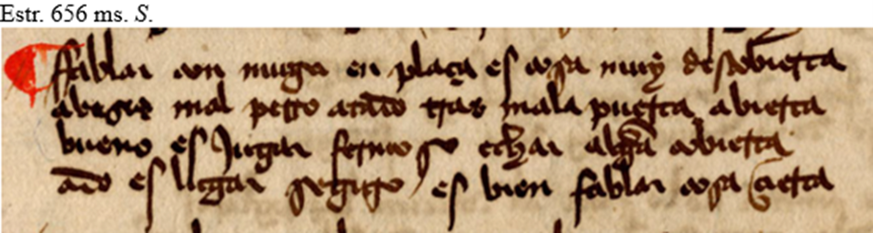 Estr. 656 ms. S.
ffablar con muger en plaça es cosa muy descobierta
a bezes mal perro atado tras mala puerta abierta
bueno es Jugar fermoso echar algũa cobierta
ado es lugar seguro es bien fablar cosa çierta